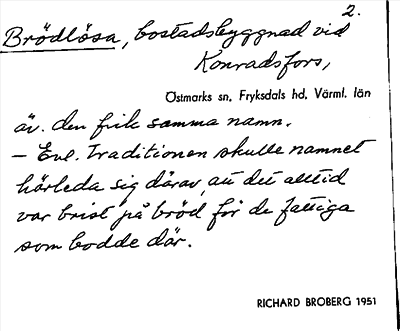 2.
Brödlösa, bostadsbyggnad vid
Konradsfors,
Östmarks sn, Fryksdals hd, Värml. län
äv. den frik samma namn.
– Enl. Traditionen skulle namnet
härleda sig därav, att det alltid
var brist på bröd för de fattiga
som bodde där.
RICHARD BROBERG 1951